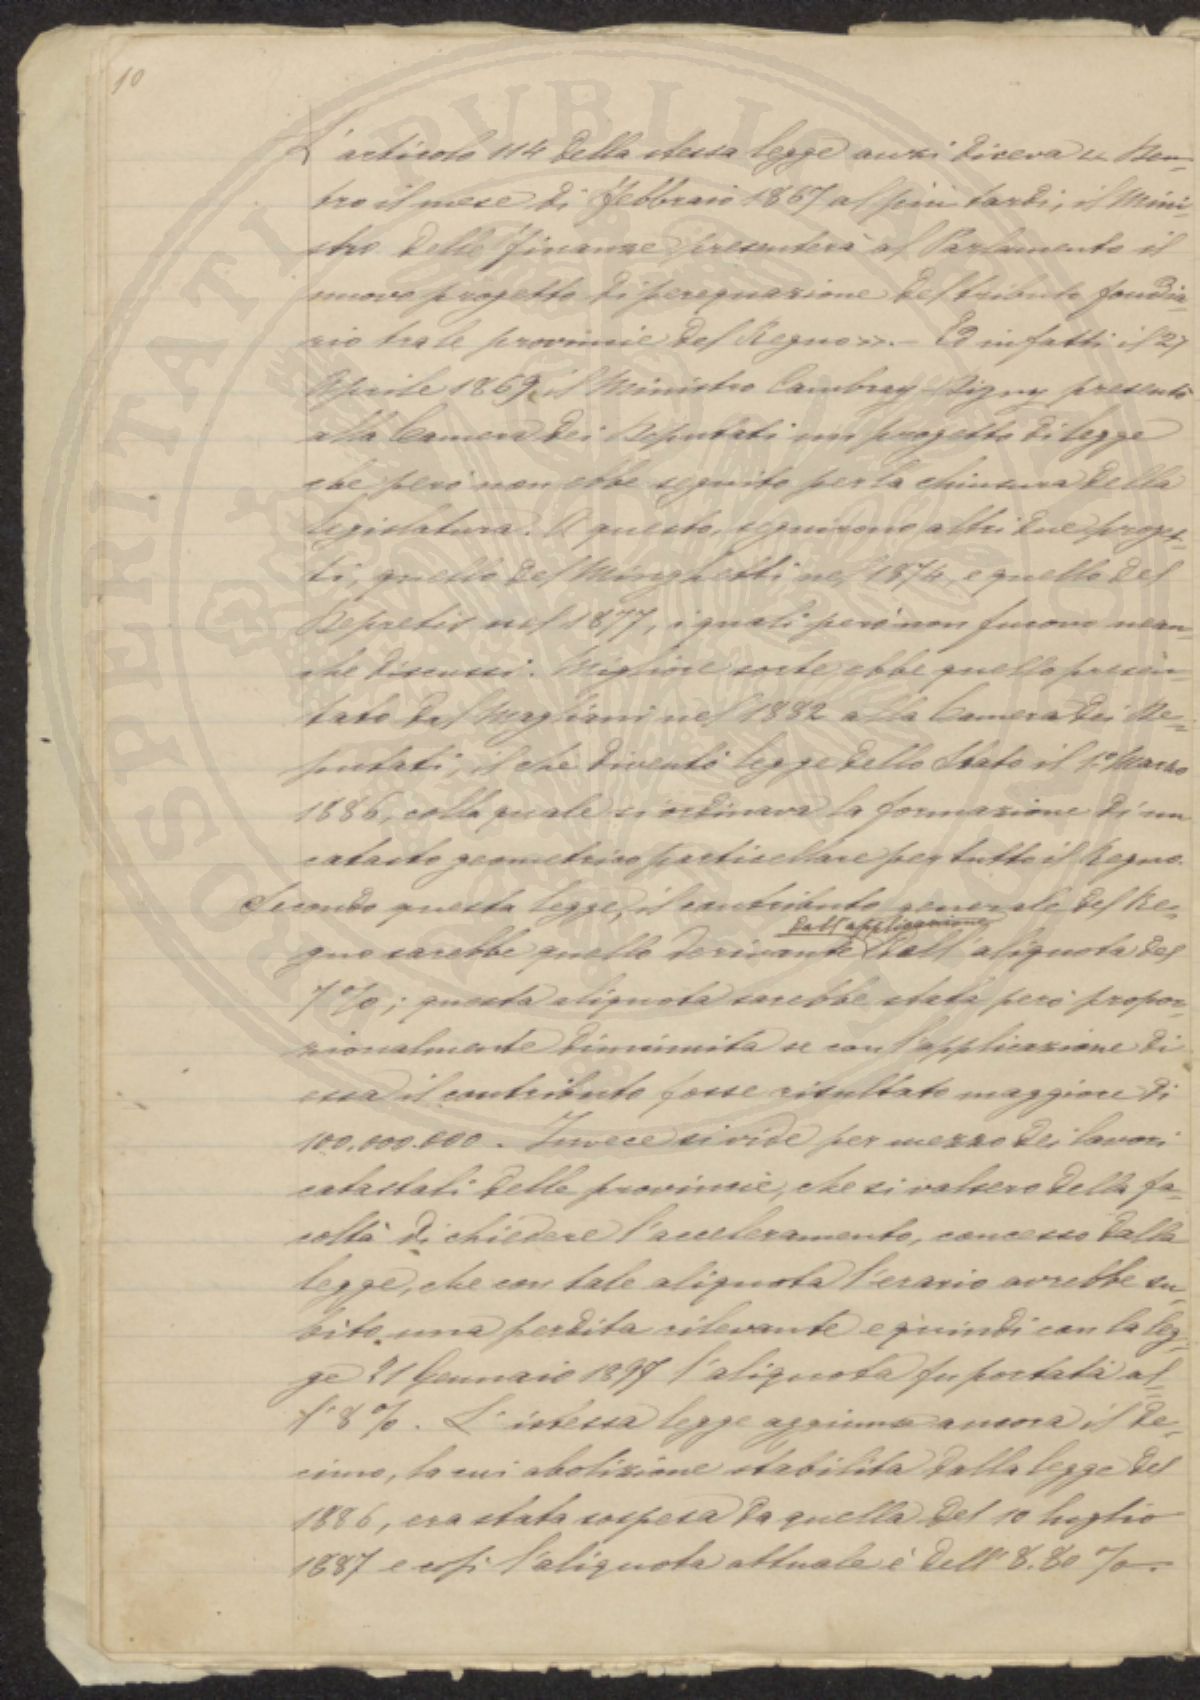 10
L'articolo 114 della stessa legge anzi diceva « Den=
tro il mese di Febbraio 1867 al più tardi, il Mini=
stro delle finanze presenterà al Parlamento il
nuovo progetto di perequazione del tributo fondia=
rio tra le provincie del Regno ». – Ed infatti il 27
Aprile 1869, il Ministro Cambray-Digny presentò
alla Camera dei Deputati un progetto di legge
che però non ebbe seguito per la chiusura della
legislatura. A questo, seguirono altri due proget=
ti, quello del Minghetti nel 1874, e quello del
Depretis nel 1877, i quali però non furono nean=
che discussi. Migliore sorte ebbe quello presen=
tato dal Magliani nel 1882 alla Camera dei De=
putati, il che diventò legge dello Stato il 1º Marzo
1886, colla quale si ordinava la formazione di un
catasto geometrico particellare per tutto il Regno.
Secondo questa legge, il contributo generale del Re=
dall'applicazione
gno sarebbe quello derivante dall'aliquota del
7%; questa aliquota sarebbe stata però propor=
zionalmente diminuita se con l'applicazione di
essa il contributo fosse risultato maggiore di
100.000.000. Invece si vide per mezzo dei lavori
catastali delle provincie, che si valsero della fa=
coltà di chiedere l'acceleramento, concesso dalla
legge, che con tale aliquota l'erario avrebbe su=
bito una perdita rilevante e quindi con la leg=
ge 21 Gennaio 1897 l'aliquota fu portata al=
l'8%. L'istessa legge aggiunse ancora il de=
cimo, la cui abolizione stabilita dalla legge del
1886, era stata sospesa da quella del 10 luglio
1887 e così l'aliquota attuale è dell'8.80%.
PROSPERITATI PUBLICAE